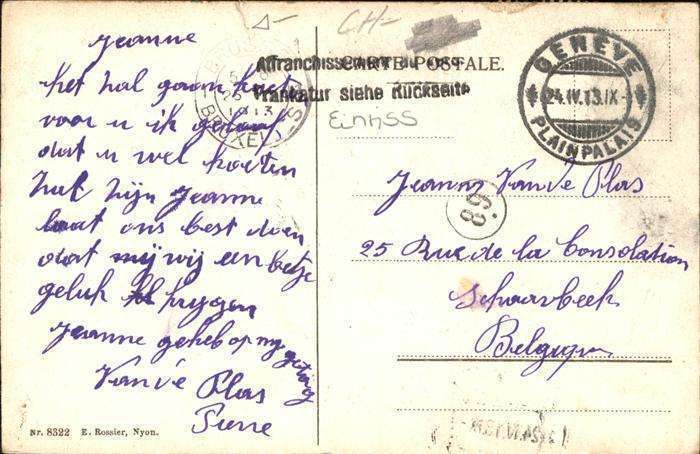 Jeanne
het hal gaan het
voor u ik geloof
dat u wel moeten
hal zijn Jeanne
laat ons best doen
dat mij wij een betje
geluk krygen
Jeanne geheb op my
Van de Plas
Pierre
CH-
Affranchissement au dos
Frankatur siehe Rückseite
CARTE POSTALE.
EinFSS
GENÈVE
24.IV.13.IX
PLAINPALAIS
Jeanne Van de Plas
68
25 Rue de la Consolation
Schaarbeek
Belgique
Nr. 8322 E. Rossier, Nyon.